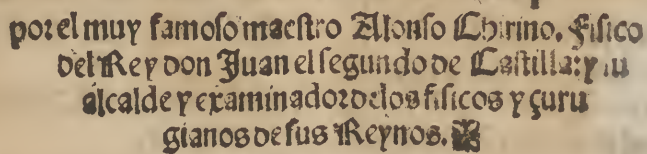 por el muy famoso maestro Alonso Chirino. Fisico
del Rey don Juan el segundo de Castilla: y su
alcalde y examinador de los fisicos y çuru
gianos de sus Reynos.